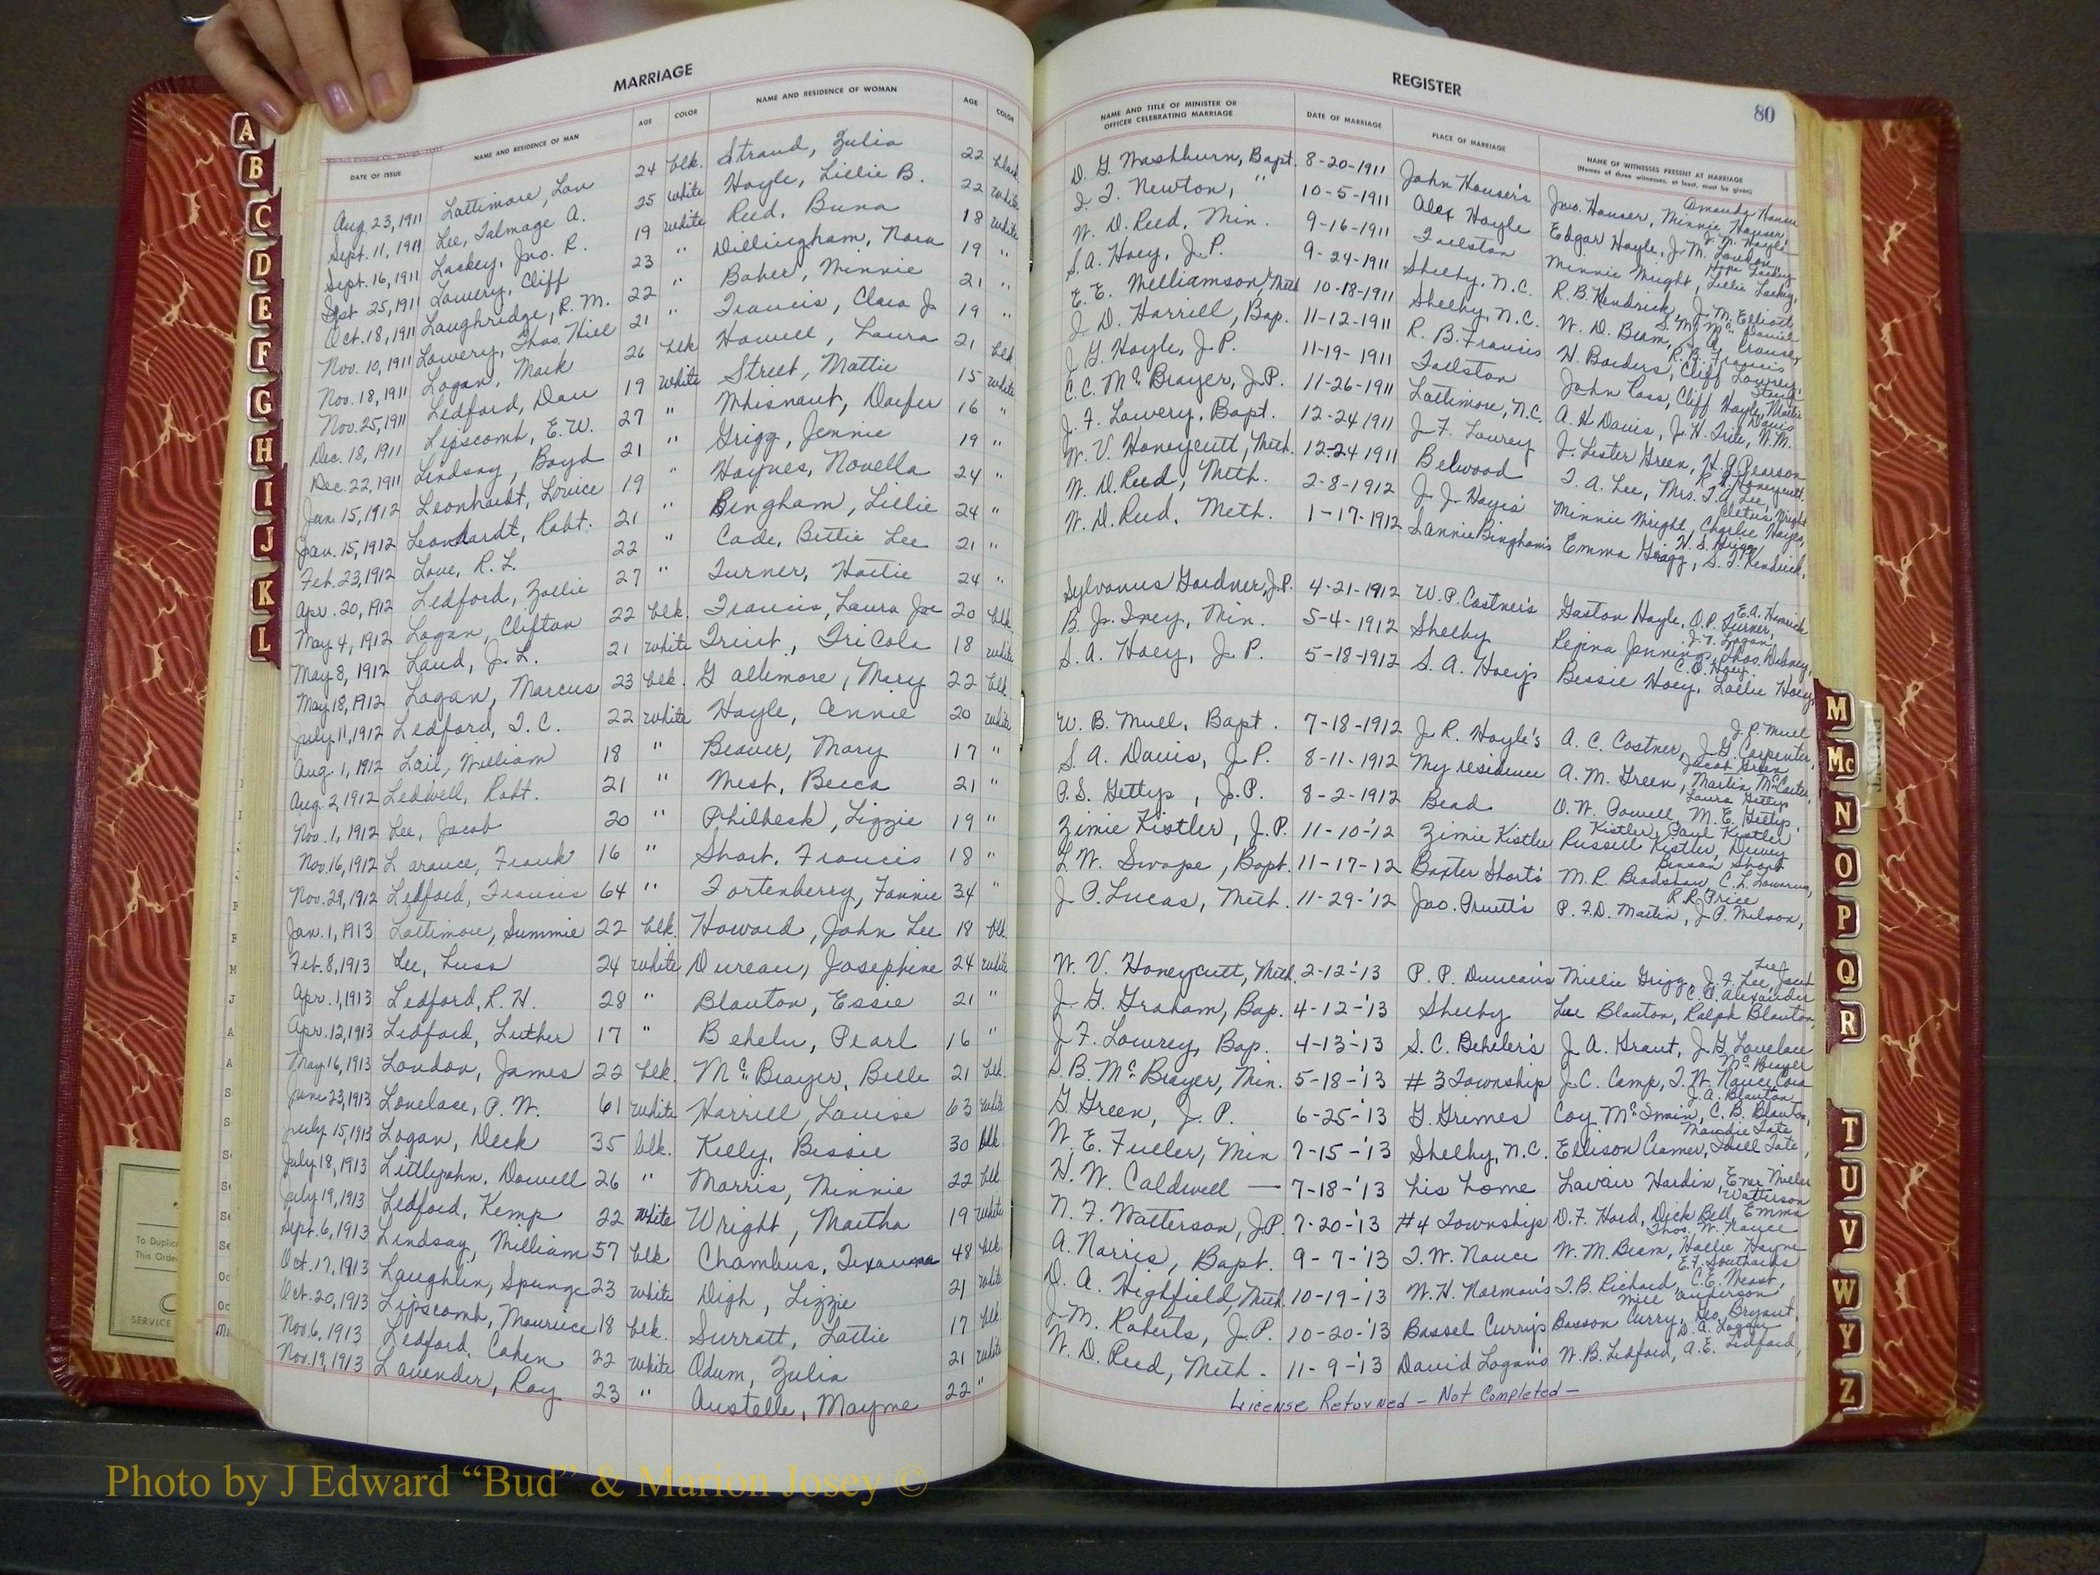 MARRIAGE
DATE OF ISSUE NAME AND RESIDENCE OF MAN AGE COLOR NAME AND RESIDENCE OF WOMAN AGE COLOR
Aug. 23, 1911 Lattimore, Lon 24 blk. Strand, Zulia 22 black
Sept. 11, 1911 Lee, Talmage A. 25 white Hoyle, Lillie B. 22 white
Sept. 16, 1911 Lackey, Jno. R. 19 white Reed, Buna 18 white
Sept 25, 1911 Lowery, Cliff 23 " Dillingham, Nora 19 "
Oct. 18, 1911 Laughridge, R. M. 22 " Baber, Minnie 21 "
Nov. 10, 1911 Lowery, Thos. Hill 21 " Francis, Clara J. 19 "
Nov. 18, 1911 Logan, Mark 26 blk Howell, Laura 21 blk
Nov. 25, 1911 Ledford, Dan 19 white Street, Mattie 15 white
Dec. 18, 1911 Lipscomb, E. W. 27 " Whisnant, 16 "
Dec. 22, 1911 Lindsay, Boyd 21 " Grigg, Jennie 19 "
Jan. 15, 1912 Leonhardt, Lovice 19 " Haynes, Novella 24 "
Jan. 15, 1912 Leonhardt, Robt. 21 " Bingham, Lillie 24 "
Feb. 23, 1912 Love, R. L. 22 " Cade, Bettie Lee 21 "
Apr. 20, 1912 Ledford, Zollie 27 " Turner, Hattie 24 "
May 4, 1912 Logan, Clifton 22 blk. Francis, Laura Joe 20 blk.
May 8, 1912 Laud, J. L. 21 white Trist, Tricola 18 white
May 18, 1912 Logan, Marcus 23 blk. Gallimore, Mary 22 blk
July 11, 1912 Ledford, T. C. 22 white Hoyle, Annie 20 white
Aug. 1, 1912 Lail, William 18 " Beaver, Mary 17 "
Aug. 2, 1912 Ledwell, Robt. 21 " West, Becca 21 "
Nov. 1, 1912 Lee, Jacob 20 " Philbeck, Lizzie 19 "
Nov. 16, 1912 Larance, Frank 16 " Short, Francis 18 "
Nov. 29, 1912 Ledford, Francis 64 " Fortenberry, Fannie 34 "
Jan. 1, 1913 Lattimore, Summie 22 blk. Howard, John Lee 18 blk.
Feb. 8, 1913 Lee, Luss 24 white Duncan, Josephine 24 white
Apr. 1, 1913 Ledford, R. H. 28 " Blanton, Essie 21 "
Apr. 12, 1913 Ledford, Luther 17 " Beheler, Pearl 16 "
May 16, 1913 London, James 22 blk. McBrayer, Belle 21 blk.
June 23, 1913 Lovelace, P. W. 61 white Harrill, Louise 63 white
July 15, 1913 Logan, Deck 35 blk. Kelly, Bessie 30 blk
July 18, 1913 Littlejohn, Dowell 26 " Morris, Minnie 22 blk
July 19, 1913 Ledford, Kemp 22 white Wright, Martha 19 white
Sept. 6, 1913 Lindsay, William 57 blk Chambus, Texanna 48 blk
Oct. 17, 1913 Laughlin, Spunge 23 white Digh, Lizzie 21 white
Oct. 20, 1913 Lipscomb, Maurice 18 blk. Surratt, Lottie 17 blk
Nov. 6, 1913 Ledford, Cohen 22 white Odum, Zulia 21 white
Nov. 19, 1913 Lavender, Roy 23 " Austelle, Mayme 22 "
REGISTER
80
NAME AND TITLE OF MINISTER OR OFFICER CELEBRATING MARRIAGE DATE OF MARRIAGE PLACE OF MARRIAGE NAME OF WITNESSES PRESENT AT MARRIAGE
(Names of three witnesses, at least, must be given)
D. G. Washburn, Bapt. 8-20-1911 John Houser's Jno. Houser, Minnie Houser, Amanda Houser
I. T. Newton, " 10-5-1911 Alex Hoyle Edgar Hoyle, J. M. London, J. M. Hoyle
W. D. Reed, Min. 9-16-1911 Fallston Minnie Wright, Lillie Lackey, Hope Lackey
S. A. Hoey, J. P. 9-24-1911 Shelby, N. C. R. B. Kendrick, J. M. Elliott
E. E. Williamson, Meth 10-18-1911 Shelby, N. C. W. D. Beam, S. A. Crouse
J. D. Harrill, Bap. 11-12-1911 R. B. Francis H. Borders, Cliff Lowrey, R. B. Francis
J. G. Hoyle, J. P. 11-19-1911 Fallston John Ross, Cliff Hoyle, Martin
C. C. McBrayer, J. P. 11-26-1911 Lattimore, N.C. A. H. Davis, J. H. Trile, W. M. Davis
J. F. Lowery, Bapt. 12-24 1911 J. F. Lowrey J. Lester Green, H. G. Pearson
W. V. Honeycutt, Meth. 12-24 1911 Belwood T. A. Lee, Mrs. T. A. Lee, R. Honeycutt
W. D. Reed, Meth. 2-8-1912 J. J. Hayes' Minnie Wright, Charlie Hayes, Cletus Wright
W. D. Reed, Meth. 1-17-1912 Lannie Bingham's Emma Grigg, S. T. Kendrick,
Sylvanus Gardner, J.P. 4-21-1912 W. P. Costner's Gaston Hoyle, O. P. Turner, E. A. Hamrick
B. J. Ivey, Min. 5-4-1912 Shelby Regina Jennings, Thos. Dabney, J. T. Logan
S. A. Hoey, J. P. 5-18-1912 S. A. Hoey's Bessie Hoey, Lallie Hoey, C. R. Hoey
W. B. Mull, Bapt. 7-18-1912 J. R. Hoyle's A. C. Costner, J. G. Carpenter, J. P. Mull
S. A. Davis, J. P. 8-11-1912 My residence A. M. Green, Martin McCarter, Jacob Green
P. S. Gettys, J. P. 8-2-1912 Bead O. W. Powell, M. E. Gettys, Laura Gettys
Zimie Kistler, J. P. 11-10-'12 Zimie Kistler Russell Kistler, Dewey Kistler, Paul Kistler
L. W. Swope, Bapt. 11-17-12 Baxter Short's M. R. Bradshaw, C. L. Lowrance, Benson Short
J. P. Lucas, Meth. 11-29-'12 Jno. Pruett's P. F. D. Martin, J. P. Wilson, R. R. Price
W. V. Honeycutt, Meth. 2-12-'13 P. P. Duncan's Millie Grigg, J. F. Lee, Lee
J. G. Graham, Bap. 4-12-'13 Shelby Lee Blanton, Ralph Blanton, C. C. Alexander
J. F. Lowrey, Bap. 4-13-'13 S. C. Beheler's J. A. Grant, J. G. Lovelace
S. B. McBrayer, Min. 5-18-'13 #3 Township J. C. Camp, T. W. Nance, Cora McBrayer
G. Green, J. P. 6-25-'13 G. Grimes Coy McSwain, C. B. Blanton, J. A. Blanton
W. E. Fuller, Min 7-15-'13 Shelby, N.C. Ellison Cramer, Idell Tate, Maudie Tate
H. W. Caldwell — 7-18-'13 his home Lavair Hardin, Ener Miller
N. F. Watterson, J.P. 7-20-'13 #4 Townships D. F. Hord, Dick Bell, Emma Watterson
A. Norris, Bapt. 9-7-'13 T. W. Nance W. M. Beam, Hollie Hayne, Thos. W. Nance
D. A. Highfield, Meth. 10-19-'13 W. H. Harmon's T. B. Richard, C. E. Neast, E. F. Southards
J. M. Roberts, J. P. 10-20-'13 Bassel Curry's Basson Curry, Geo. Bryant, Mill Anderson
W. D. Reed, Meth. 11-9-'13 David Logan's W. B. Ledford, A. E. Ledford, D. A. Logan
License Returned – Not Completed –
A
B
C
D
E
F
G
H
I
J
K
L
M
Mc
N
O
P
Q
R
T
U
V
W
Y
Z
To Duplic
This Orde
SERVICE
Photo by J Edward “Bud” & Marion Josey ©